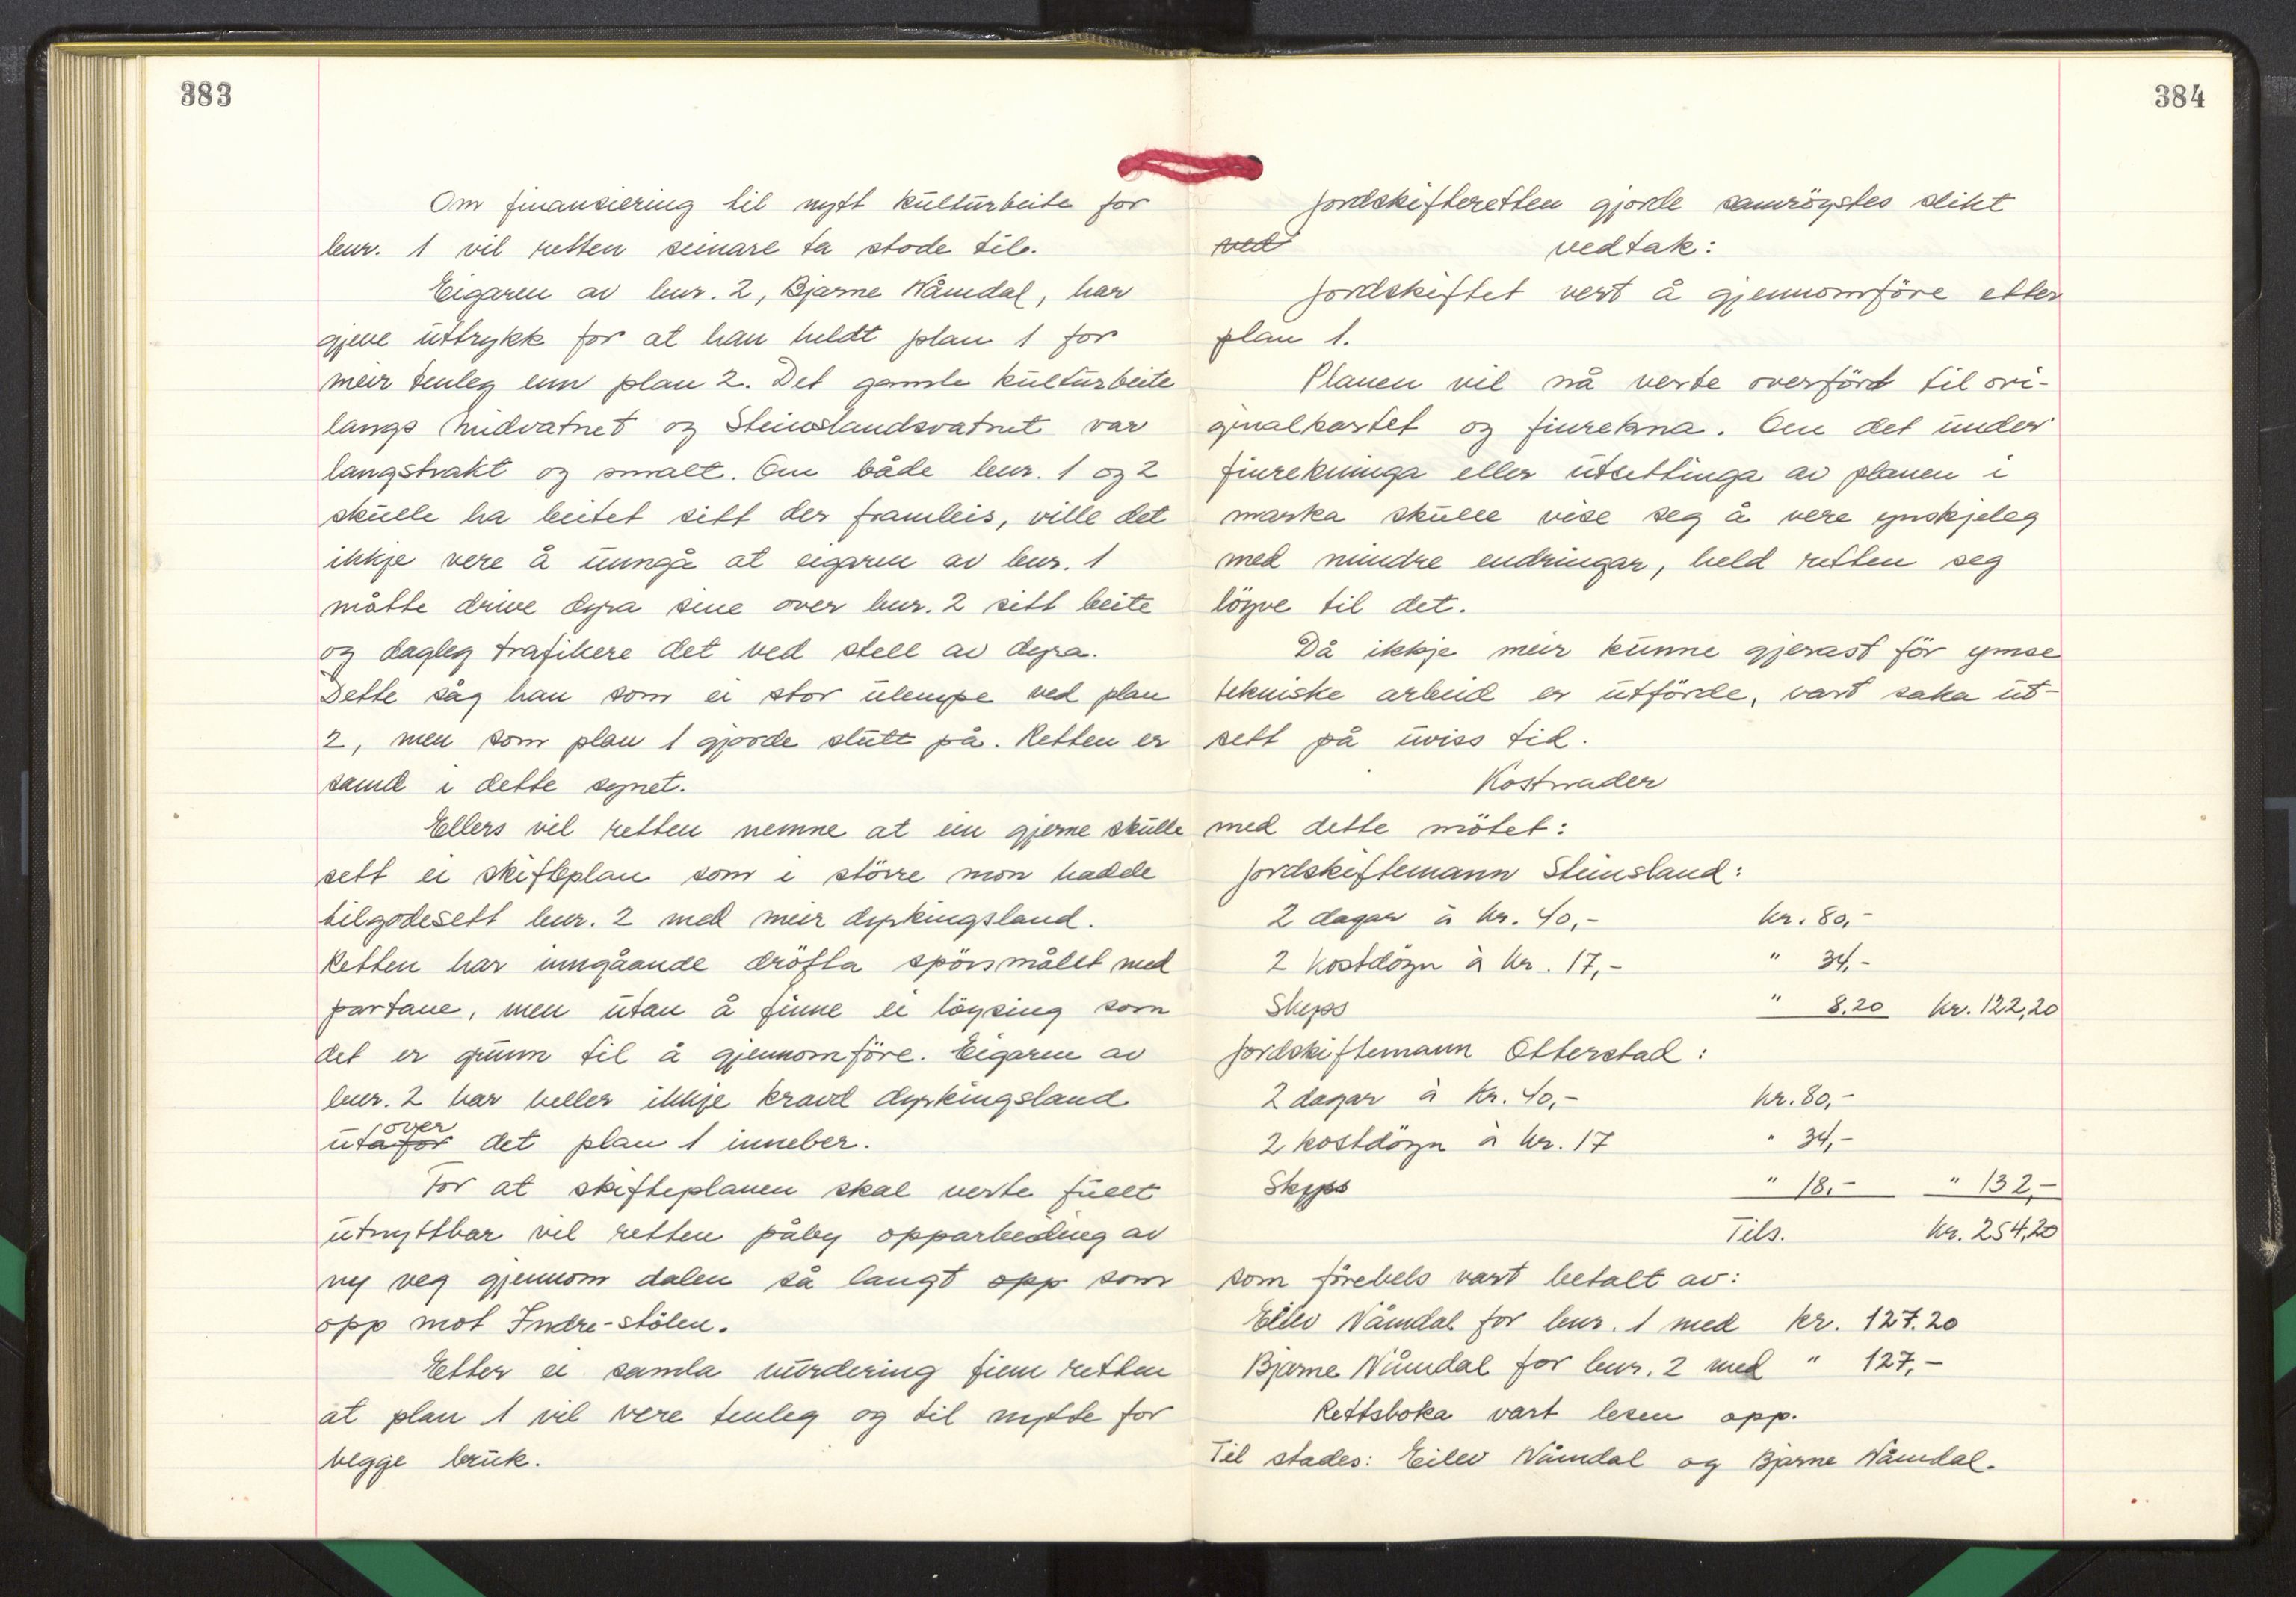 383
Om finansiering til nytt kulturbeite for
bnr. 1 vil retten seinare ta stode til.
Eigaren av bnr. 2, Bjarne Nåmdal, har
gjeve uttrykk for at han heldt plan 1 for
meir tenleg enn plan 2. Det gamle kulturbeite
langs Midvatnet og Steinslandsvatnet var
langstrakt og smalt. Om både bnr. 1 og 2
skulle ha beitet sitt der framleis, ville det
ikkje vere å unngå at eigaren av bnr. 1
måtte drive dyra sine over bnr. 2 sitt beite
og dagleg trafikere det ved stell av dyra.
Dette såg han som ei stor ulempe ved plan
2, men som plan 1 gjorde slutt på. Retten er
samd i dette synet.
Ellers vil retten nemne at ein gjerne skulle
sett ei skifteplan som i större mon hadde
tilgodesett bnr. 2 med meir dyrkingsland.
Retten har inngåande dröfta spörsmålet med
partane, men utan å finne ei löysing som
det er grunn til å gjennomföre. Eigaren av
bnr. 2 har heller ikkje kravd dyrkingsland
over
utafor det plan 1 inneber.
For at skifteplanen skal verte fullt
utnyttbar vil retten påby opparbeiding av
ny veg gjennom dalen så langt opp som
opp mot Indre-stölen.
Etter ei samla vurdering finn retten
at plan 1 vil vere tenleg og til nytte for
begge bruk.
384
Jordskifteretten gjorde samröystes slikt
ved vedtak:
Jordskiftet vert å gjennomföre etter
plan 1.
Planen vil nå verte overförd til ori-
ginalkartet og finrekna. Om det under
finrekninga eller utsettinga av planen i
marka skulle vise seg å vere ynskjeleg
med mindre endringar, held retten seg
löyve til det.
Då ikkje meir kunne gjerast för ymse
tekniske arbeid er utförde, vart saka ut-
sett på uviss tid.
Kostnader
med dette mötet:
Jordskiftemann Steinsland:
2 dagar à kr. 40,- kr. 80,-
2 kostdögn à kr. 17,- " 34,-
Skyss " 8.20 kr. 122,20
Jordskiftemann Otterstad:
2 dagar à kr. 40,- kr. 80,-
2 kostdögn à kr. 17 " 34,-
Skyss " 18,- " 132,-
Tils. kr. 254,20
som förebels vart betalt av:
Eilev Nåmdal for bnr. 1 med kr. 127.20
Bjarne Nåmdal for bnr. 2 med " 127,-
Rettsboka vart lesen opp.
Til stades: Eilev Nåmdal og Bjarne Nåmdal.